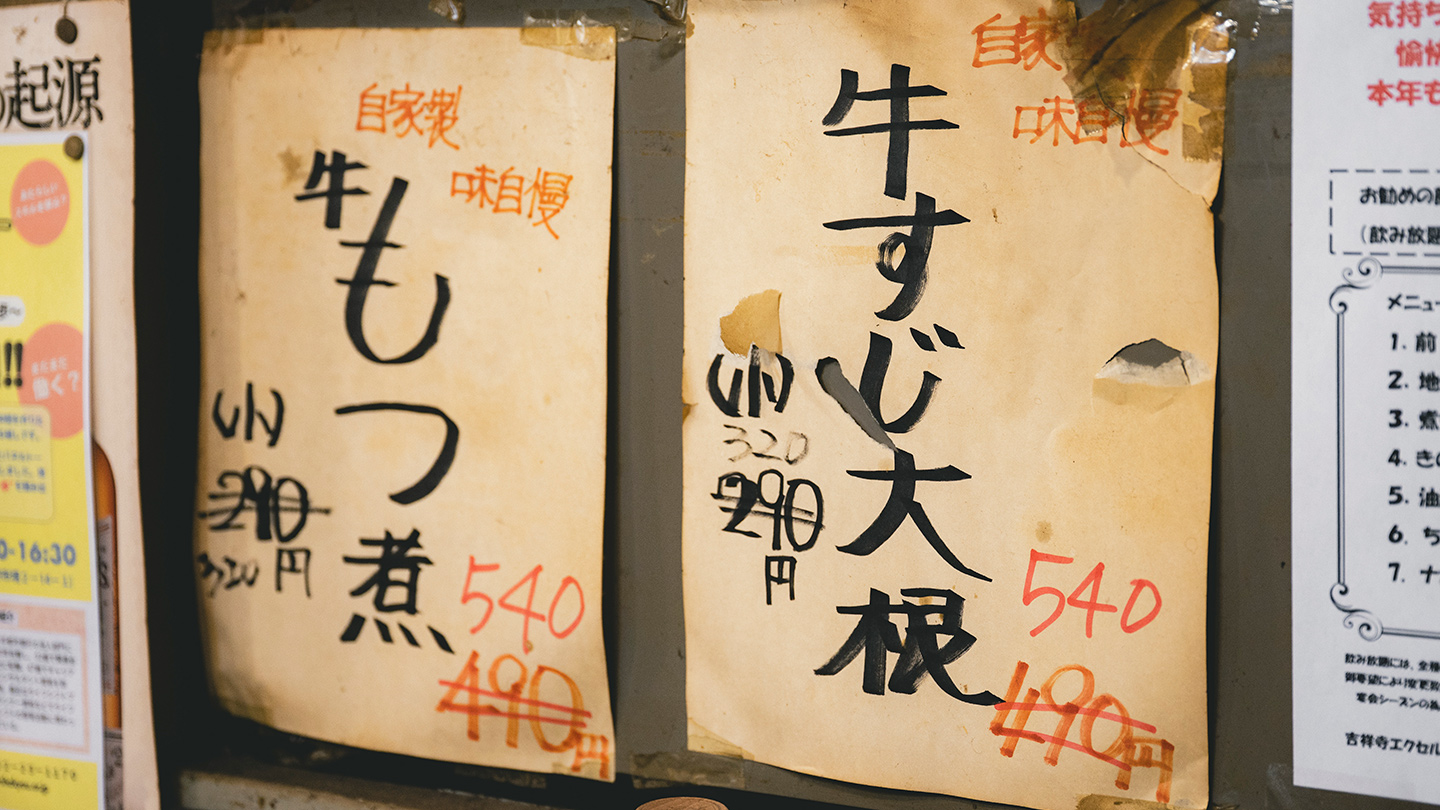 起源
!!
働く?
0-16:30
自家製
味自慢
牛もつ煮
小
290
320円
540
490円
自家
味自慢
牛すじ大根
小
320
290
円
540
490円
気持ち
愉快
本年も
お勧めの
(飲み放題
メニュー
1. 前
2. 地
3. 煮
4. きの
5. 油
6. ち
7. ナ
飲み放題には、全種
御要望により変更
宴会シーズンの為
吉祥寺エクセル